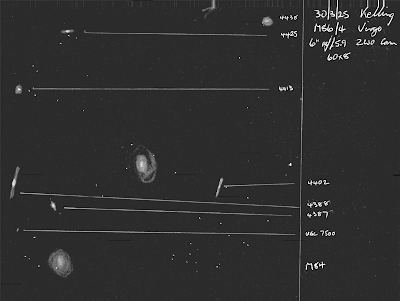 30/3/25 Kelling
M86/4 Virgo
6" f/5.9 ZWO Cam
60x8
4435
4425
4413
4402
4388
4387
UGC 7500
M84